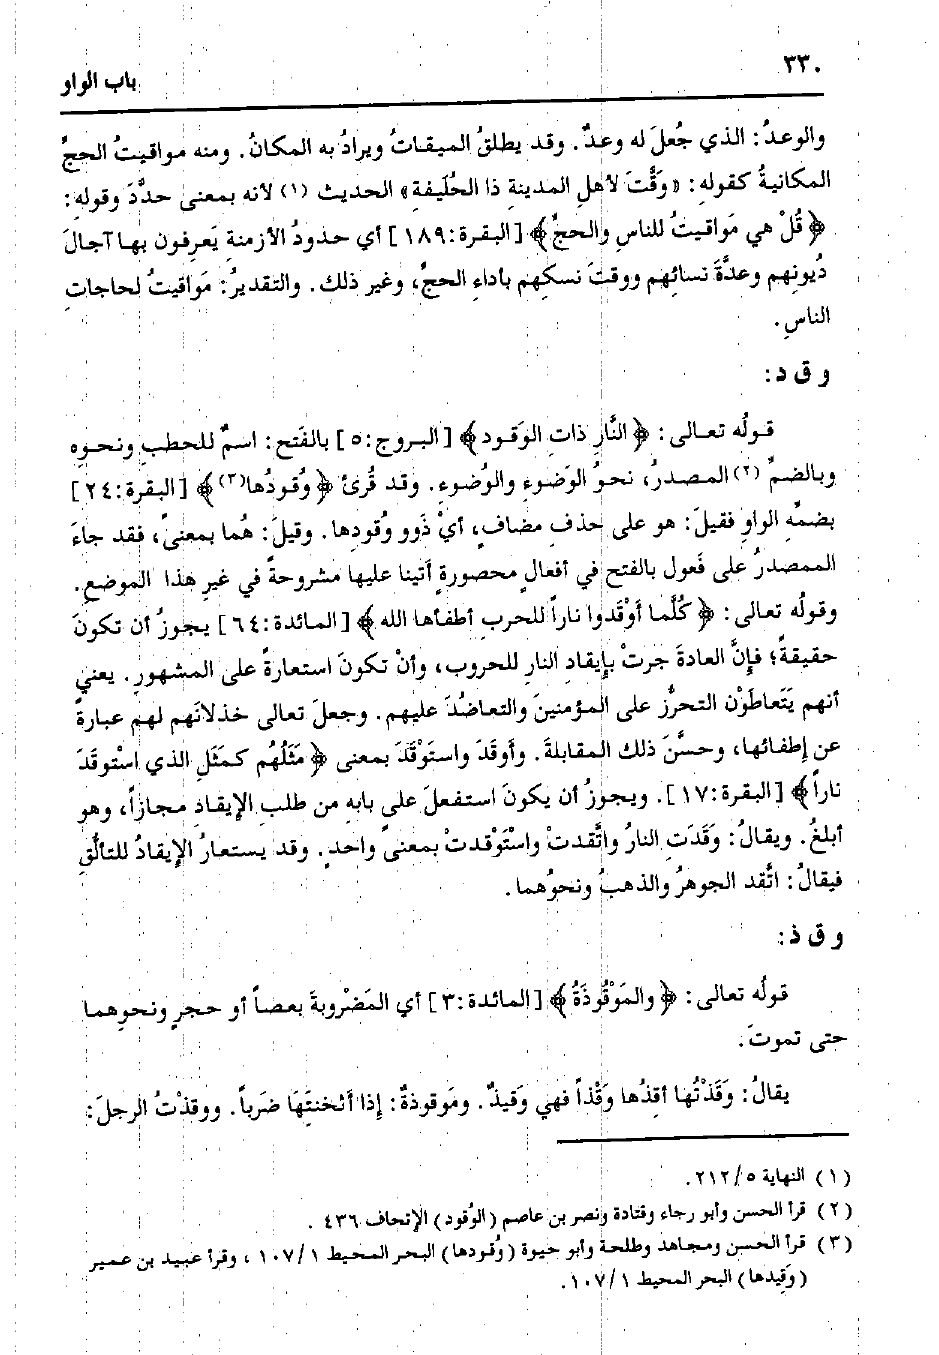 ٣٣٠
باب الواو
والوعدُ: الذي جُعلَ له وعدٌ. وقد يطلقُ الميقاتُ ويرادُ به المكانُ. ومنه مواقيتُ الحجِّ
المكانيةُ كقوله: «وَقَّتَ لأهلِ المدينةِ ذا الحُلَيفةِ» الحديث (١) لأنه بمعنى حدَّدَ وقوله:
﴿قُلْ هي مَواقيتُ للناسِ والحجِّ﴾ [البقرة: ١٨٩] أي حدودُ الأزمنةِ يَعرِفون بها آجالَ
دُيونِهم وعدَّةَ نسائِهم ووقتَ نسكِهم بأداءِ الحجِّ، وغير ذلك. والتقديرُ: مَواقيتُ لحاجاتِ
الناسِ.
و ق د:
قولُه تعالى: ﴿النَّارِ ذاتِ الوَقود﴾ [البروج: ٥] بالفَتح: اسمٌ للحطبِ ونحوِه
وبالضمِّ (٢) المصدرُ، نحوُ الوَضوءِ والوُضوءِ. وقد قُرئَ ﴿وُقودُها(٣)﴾ [البقرة: ٢٤]
بضمِّه الواوِ فقيلَ: هو على حذفِ مضافٍ، أيْ ذَوو وُقودِها. وقيلَ: هُما بمعنىً، فقد جاءَ
المصدرُ على فَعول بالفتح في أفعالٍ محصورةٍ أتينا عليها مشروحةً في غيرِ هذا الموضعِ.
وقولُه تعالى: ﴿كُلَّما أوْقَدوا ناراً للحربِ أطفأها الله﴾ [المائدة: ٦٤] يجوزُ أن تكونَ
حقيقةً؛ فإنَّ العادةَ جرتْ بإيقادِ النارِ للحروب، وأنْ تكونَ استعارةً على المشهورِ. يعني
أنهم يَتَعاطَوْن التحرزَ على المؤمنينَ والتعاضُدَ عليهم. وجعلَ تعالى خذلانَهم لهم عبارةً
عن إطفائها، وحسَّنَ ذلك المقابلةَ. وأوقَدَ واستَوْقَدَ بمعنى ﴿مَثَلُهُم كمثَلِ الذي استْوقَدَ
ناراً﴾ [البقرة: ١٧]. ويجوزُ أن يكونَ استفعلَ على بابِه من طلبِ الإيقادِ مجازاً، وهو
أبلغُ. ويقالُ: وَقَدَتِ النارُ واتَّقدتْ واسْتَوْقدتْ بمعنىً واحدٍ. وقد يستعارُ الإيقادُ للتألُّقِ
فيقالُ: اتَّقد الجوهرُ والذهبُ ونحوُهما.
و ق ذ:
قولُه تعالى: ﴿والمَوْقُوذَةُ﴾ [المائدة: ٣] أي المَضْروبةَ بعصاً أو حجرٍ ونحوِهما
حتى تموتَ.
يقالُ: وَقَذْتُها أقِذُها وَقْذاً فهي وَقيذٌ. ومَوقوذةٌ: إذا أثخنتَهَا ضَرباً. ووقذتُ الرجلَ:
(١) النهاية ٥/٢١٢.
(٢) قرأ الحسن وأبو رجاء وقتادة ونصر بن عاصم (الوُقود) الإتحاف ٤٣٦.
(٣) قرأ الحسن ومجاهد وطلحة وأبو حيوة (وُقودها) البحر المحيط ١/١٠٧، وقرأ عبيد بن عمير
(وَقيدها) البحر المحيط ١/١٠٧.